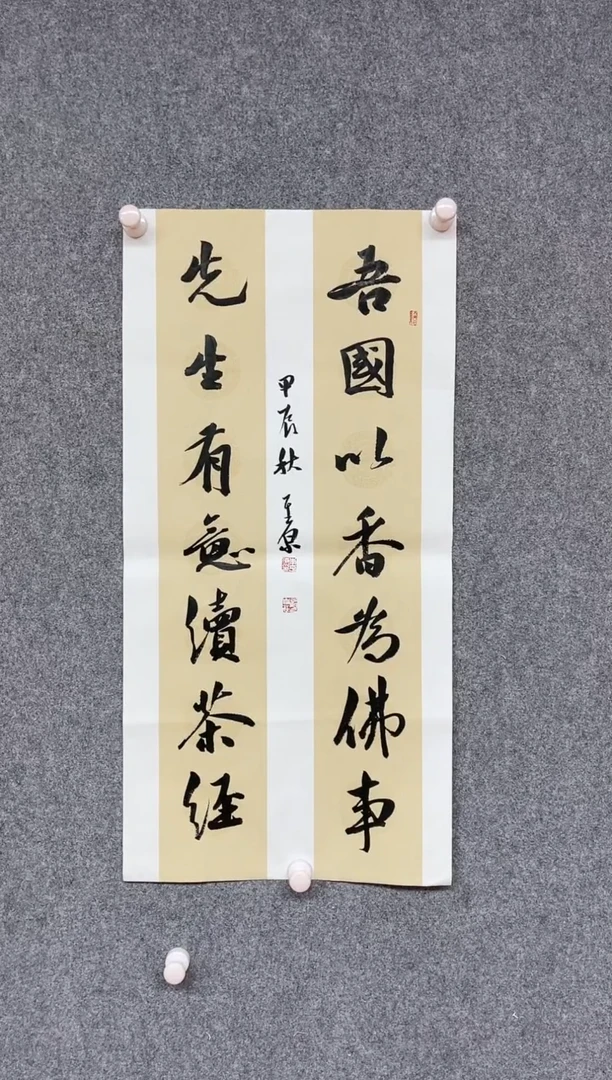 吾國以香為佛事
先生有意續茶經
甲辰秋